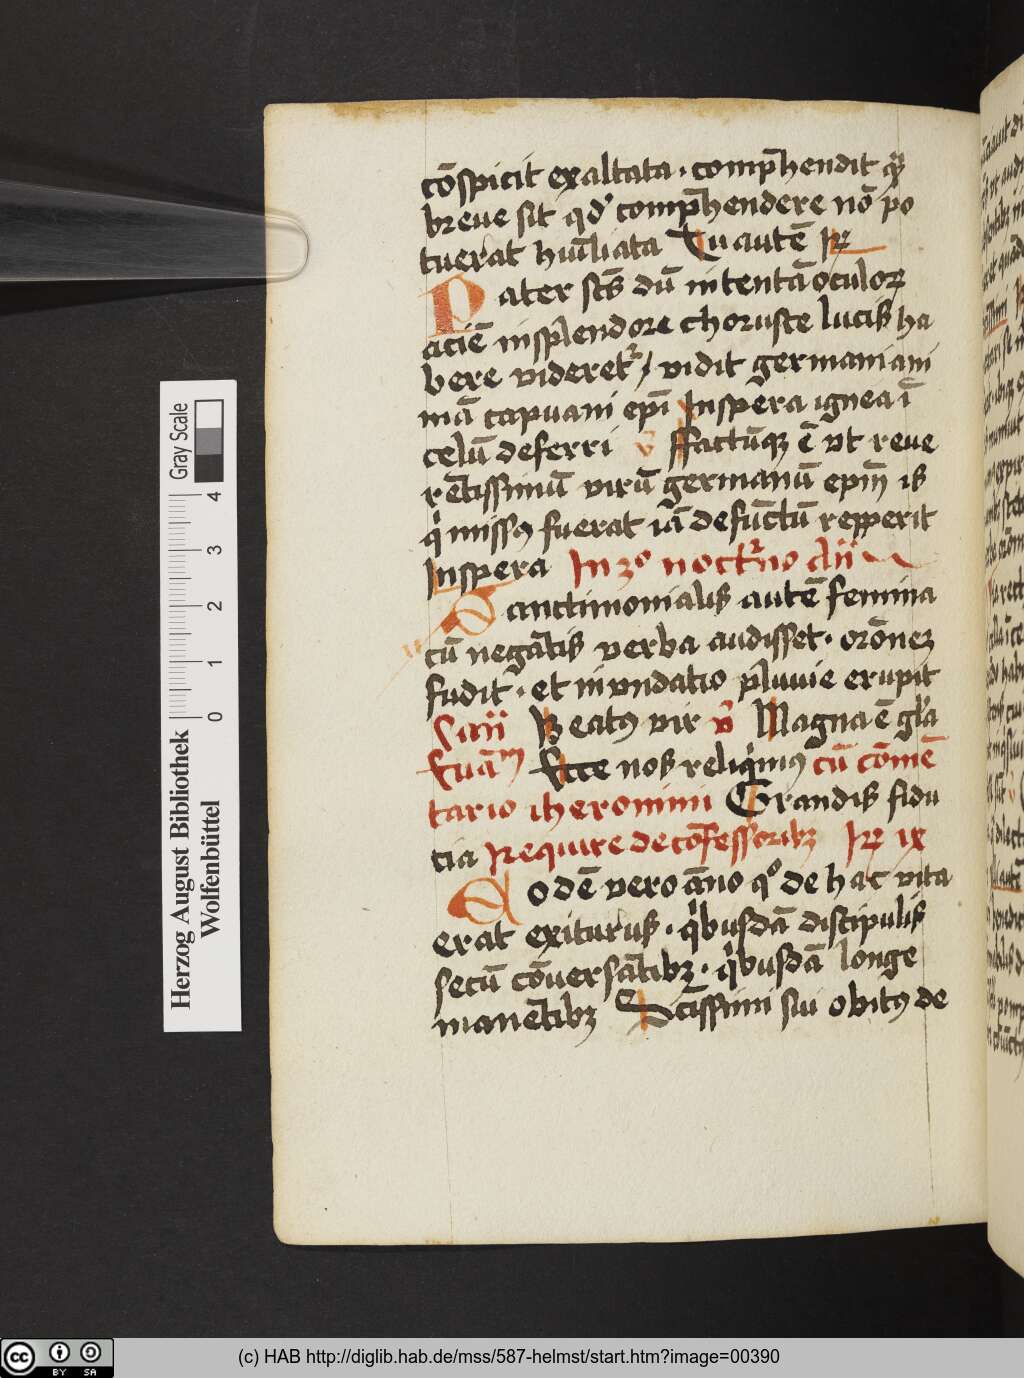 cōspicit exaltata · comp̄hendit qꝫ
breue sit qd' comp̄hendere nō po
tuerat humīliata Tu autē ꝶ
Pater sc̄s dū intentā oculoꝝ
aciē in splendore choruste lucis ha
bere videret᷑ / vidit germani ani
mā capuani ep̄i In spera ignea ī
celū deferri v̄ ffactūqꝫ ē vt reue
rētissimū virū germanū ep̄m is
qͥ missꝰ fuerat iā defūctū repperit
In spera In ꝫº noctᷣno Aīi
Sanctimonialis autē femina
cū negātis verba audisset · orōneꝫ
fudit · et inundatio pluuie erupit
S iiii Beatꝰ vir v̄ Magna ē gl'a
Euā^m Ecce nos reliqͥmꝰ cū cōmē
tario iheronimi Grandis fidu
cia Require de cōfessoribꝫ ꝶ ix
Eodē vero āno qº de hac vita
erat exiturus · qͥbusdā discipulis
secū cōuersātibꝫ · qͥbusdā longe
manētibꝫ Sctissimi sui obitꝰ de
Herzog August Bibliothek
Wolfenbüttel
Gray Scale
0 1 2 3 4
cc BY SA
(c) HAB http://diglib.hab.de/mss/587-helmst/start.htm?image=00390